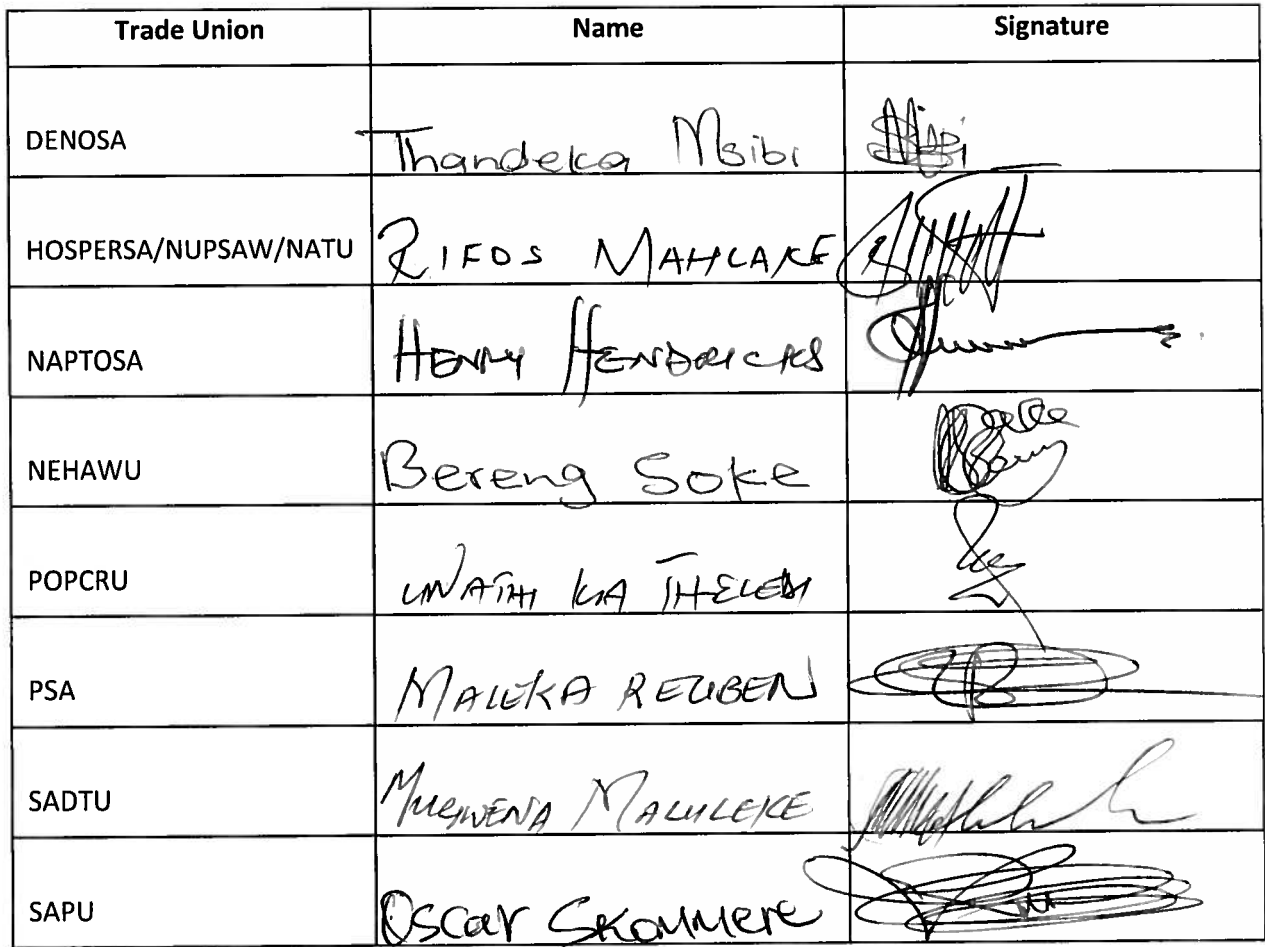 Trade Union Name Signature
DENOSA Thandeka Msibi
HOSPERSA/NUPSAW/NATU RIFOS MAHLAKE
NAPTOSA HENRY HENDRICKS
NEHAWU Bereng Soke
POPCRU UNATHI KA THELEDI
PSA MALEKA REUBEN
SADTU MUGWENA MALULEKE
SAPU Oscar Skommere